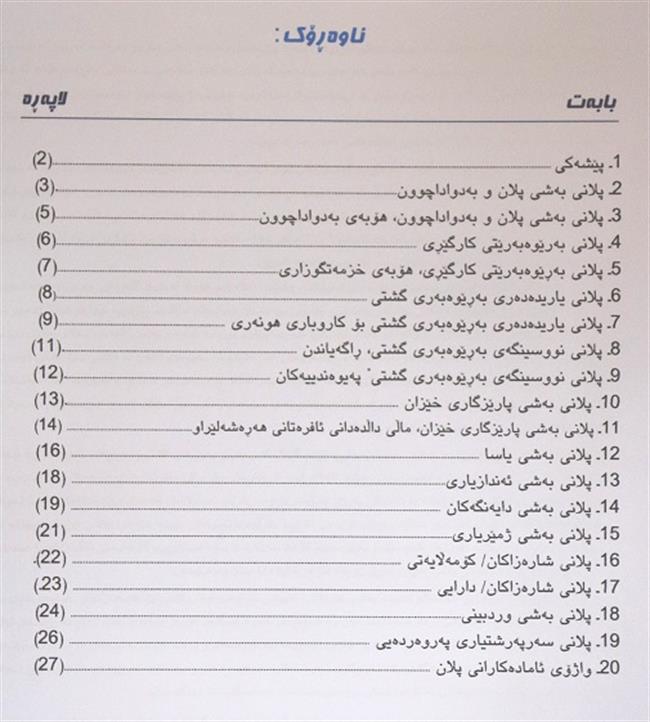 ناوەڕۆک:
بابەت لاپەڕە
1ـ پێشەکی (2)
2ـ پلانی بەشی پلان و بەدواداچوون (3)
3ـ پلانی بەشی پلان و بەدواداچوون، هۆبەی بەدواداچوون (5)
4ـ پلانی بەرێوەبەرێتی کارگێری (6)
5ـ پلانی بەڕێوەبەرێتی کارگێری، هۆبەی خزمەتگوزاری (7)
6ـ پلانی یاریدەدەری بەڕێوەبەری گشتی (8)
7ـ پلانی یاریدەدەری بەڕێوەبەری گشتی بۆ کاروباری هونەری (9)
8ـ پلانی نووسینگەی بەڕێوەبەری گشتی، ڕاگەیاندن (11)
9ـ پلانی نووسینگەی بەڕێوەبەری گشتی ٞ پەیوەندییەکان (12)
10ـ پلانی بەشی پارێزگاری خێزان (13)
11ـ پلانی بەشی پارێزگاری خێزان، ماڵی داڵدەدانی ئافرەتانی هەڕەشەلێراو (14)
12ـ پلانی بەشی یاسا (16)
13ـ پلانی بەشی ئەندازیاری (18)
14ـ پلانی بەشی دایەنگەکان (19)
15ـ پلانی بەشی ژمێریاری (21)
16ـ پلانی شارەزاکان/ کۆمەڵایەتی (22)
17ـ پلانی شارەزاکان/ دارایی (23)
18ـ پلانی بەشی وردبینی (24)
19ـ پلانی سەرپەرشتیاری پەروەردەیی (26)
20ـ واژۆی ئامادەکارانی پلان (27)